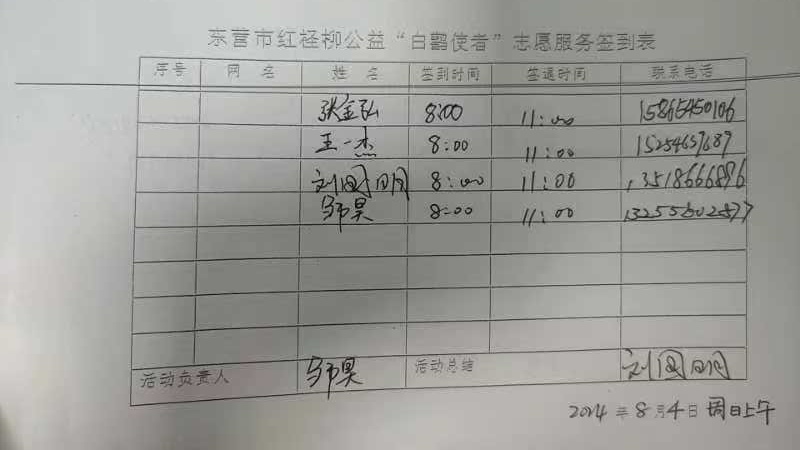 东营市红柽柳公益“白鹳使者”志愿服务签到表
序号 网 名 姓 名 签到时间 签退时间 联系电话
张金弘 8:00 11:00 15865450106
王一杰 8:00 11:00 15254657689
刘 8:00 11:00 13518666896
8:00 11:00
活动负责人 活动总结 刘
2024年8月4日 周日上午